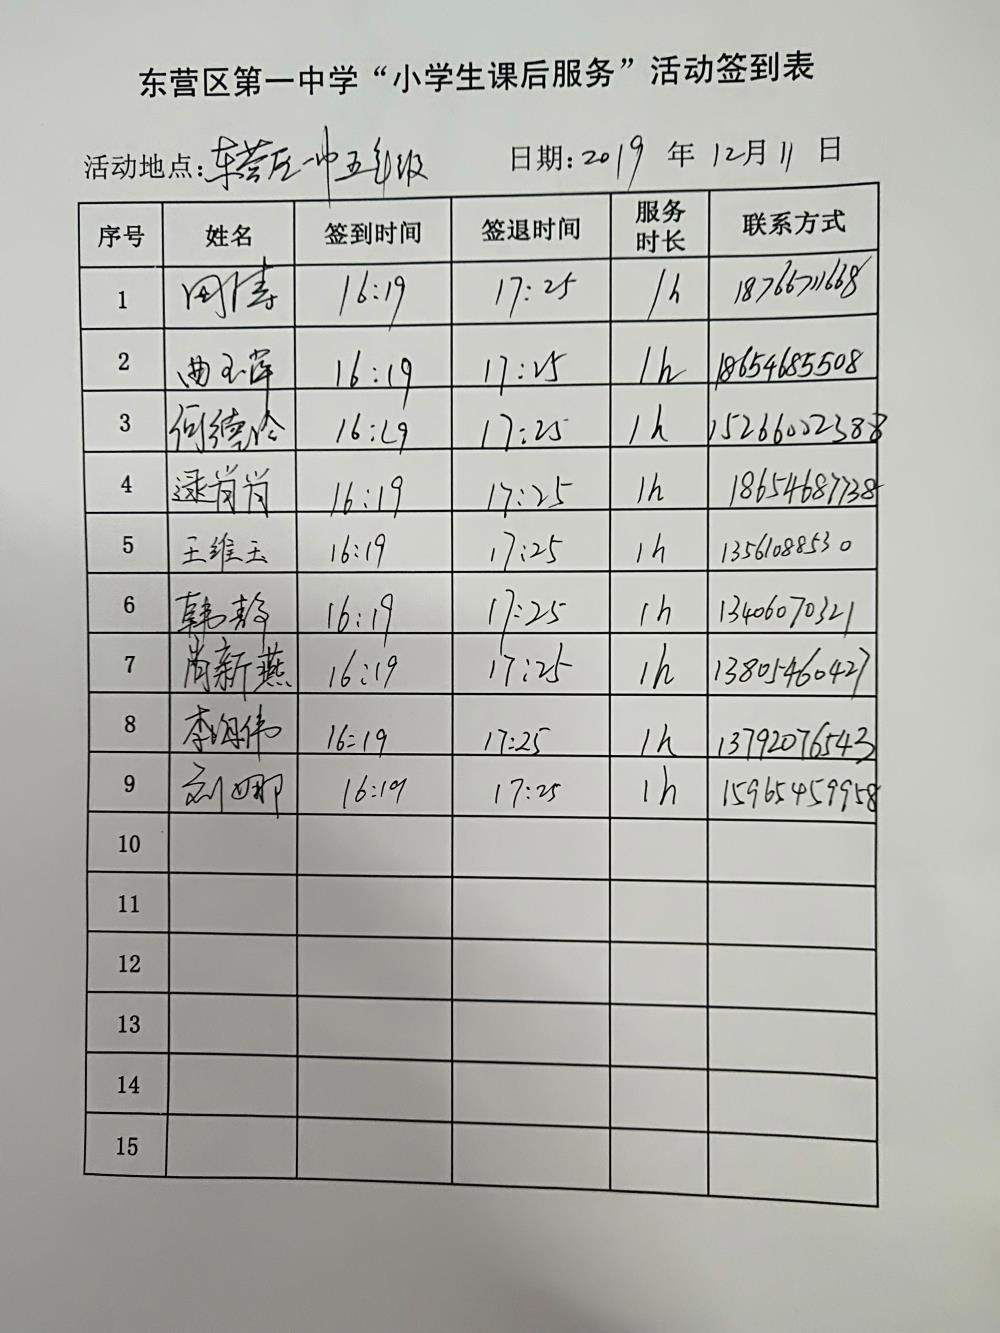 东营区第一中学“小学生课后服务”活动签到表
活动地点:东营区一中五年级 日期:2019年12月11日
序号 姓名 签到时间 签退时间 服务时长 联系方式
1 周涛 16:19 17:25 1h 18766711668
2 曲玉萍 16:19 17:25 1h 18654685508
3 何德玲 16:19 17:25 1h 15266002388
4 逯肖肖 16:19 17:25 1h 18654687738
5 王维玉 16:19 17:25 1h 13561088530
6 韩静 16:19 17:25 1h 13406070321
7 肖新燕 16:19 17:25 1h 13805460427
8 李明伟 16:19 17:25 1h 13792076543
9 刘娜 16:19 17:25 1h 15965459958
10
11
12
13
14
15